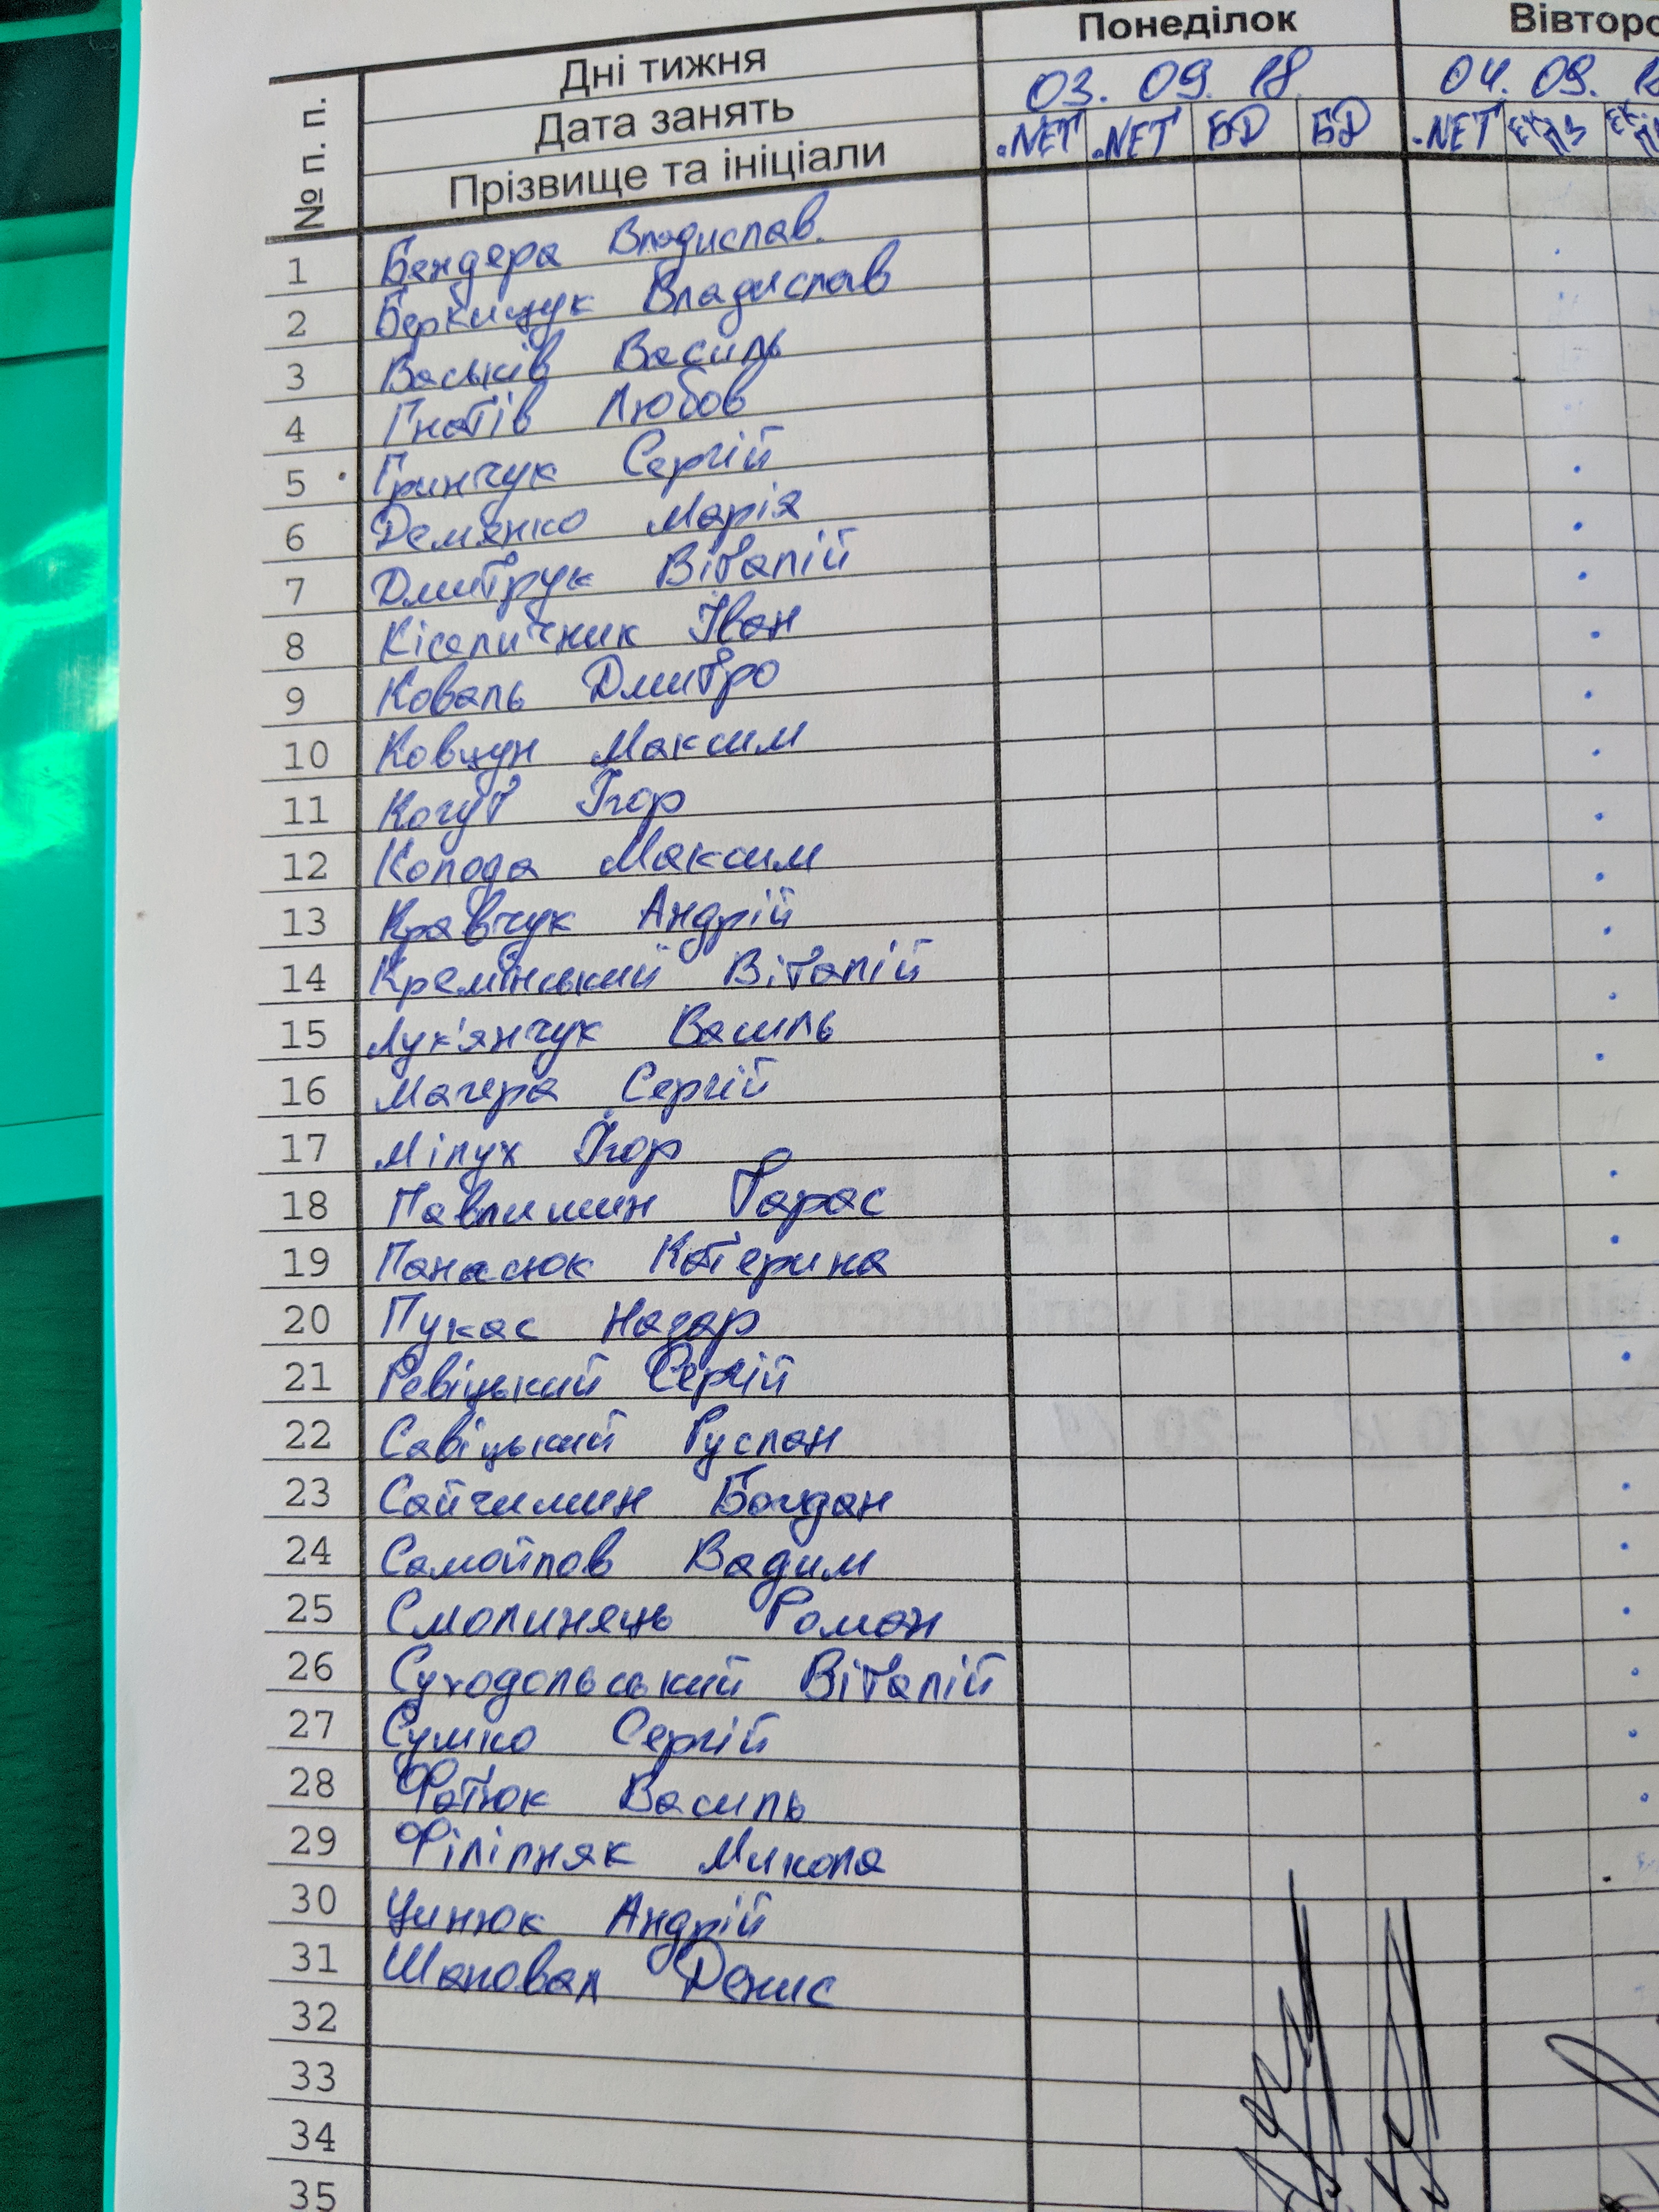 Дні тижня Понеділок
Дата занять 03. 09. 18 04. 09.
№ п. п. Прізвище та ініціали .NET .NET БД БД .NET
1 Бендера Владислав
2 Беркищук Владислав
3 Васьків Василь
4 Гнатів Любов
5 Гринчук Сергій
6 Демянко Марія
7 Дмитрук Віталій
8 Кіселичник Іван
9 Коваль Дмитро
10 Ковцун Максим
11 Когут Ігор
12 Колода Максим
13 Кравчук Андрій
14 Кремінський Віталій
15 Лук'янчук Василь
16 Магера Сергій
17 Мілух Ігор
18 Павлишин Тарас
19 Панасюк Катерина
20 Пукас Назар
21 Ревіцький Сергій
22 Савіцький Руслан
23 Сайчишин Богдан
24 Самойлов Вадим
25 Смолинець Роман
26 Суходольський Віталій
27 Сушко Сергій
28 Фатюк Василь
29 Філіпняк Микола
30 Цинюк Андрій
31 Шаповал Денис
32
33
34
35